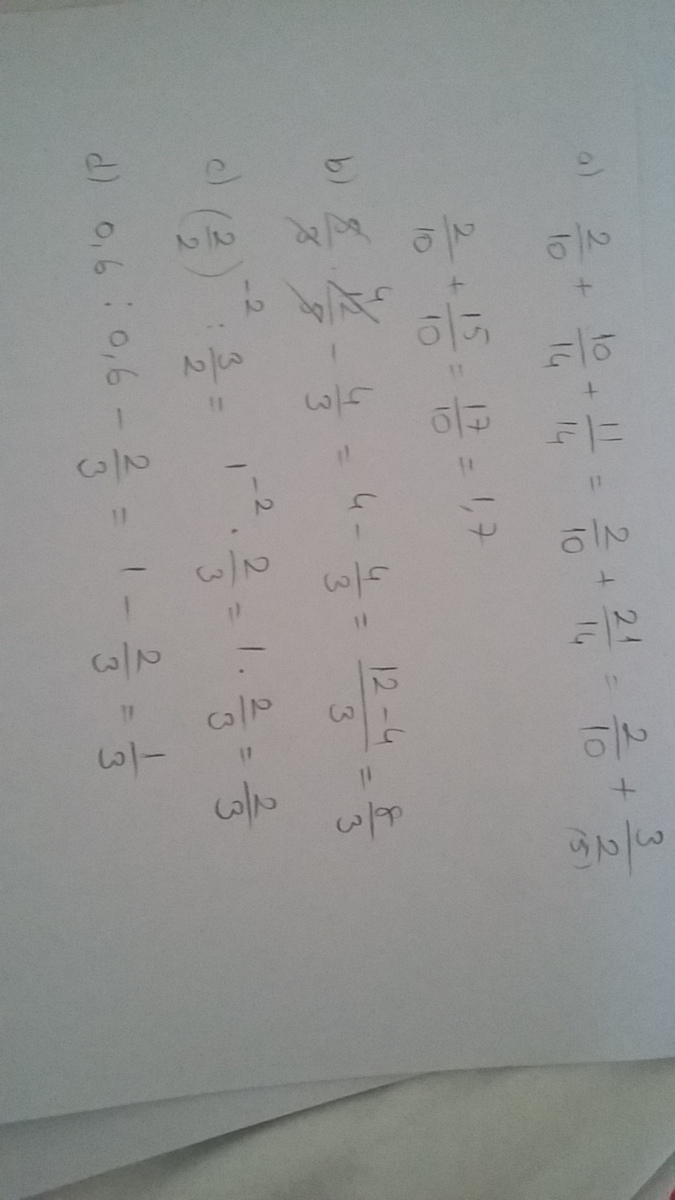 a) 2/10 + 10/14 + 11/14 = 2/10 + 21/14 = 2/10 + 3/2 (5)
2/10 + 15/10 = 17/10 = 1,7
b) 12 4 - 4/3 = 4 - 4/3 = 12-4/3 = 8/3
c) (2/2)^-2 : 3/2 = 1^-2 · 2/3 = 1 · 2/3 = 2/3
d) 0,6 : 0,6 - 2/3 = 1 - 2/3 = 1/3